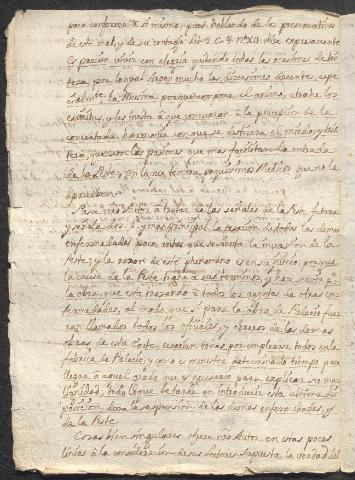 poco conforme à si mismo, pues hablando de los preservativos
de este mal, y de su contagio Lib. 2. C. 3. nº XII. dize expresamente
Es preciso vivir con alegria quitando todas las ocasiones de tris
teza, por lo qual sirven mucho las diversiones decentes, espe
cialmte. la Musica porque compone el animo, atrahe los
espiritus, y les incita à que concurran à la percepcion de la
concertada harmonia con que se destierra el miedo, y tris
teza, que son las pasiones que mas facilitan la entrada
de la Peste, en lo que tendra poquisimos Medicos que no le
aprueben.
Pasa nro Autor à tratar de las señales de la Peste futura
y es la principal la cesacion de todas las demas
enfermedades poco antes que se sienta la invasion de la
Peste, y la razon de este phenomeno es en su juicio, porque
la causa de la Peste tira à sus terminos, y hace junta pa.
la obra, que està trazando à todos los agentes de otras en
fermedades, al modo que si para la obra de Palacio fue
ran llamados todos los oficiales, y obreros de las demas
obras de esta Corte, cesarian todas por emplearse todos en la
fabrica de Palacio, y como es menester determinado tiempo para
llegar à aquel grado que es necesario para explicar su ma
lignidad, todo lo que se tarda en introducir esta ultima dis
posicion, dura la suspension de las demas enfermedades, y
de la Peste.
Cosas bien singulares ofrece nro Autor en estas pocas
lineas à la consideracion de sus Lectores. Supuesta la verdad del